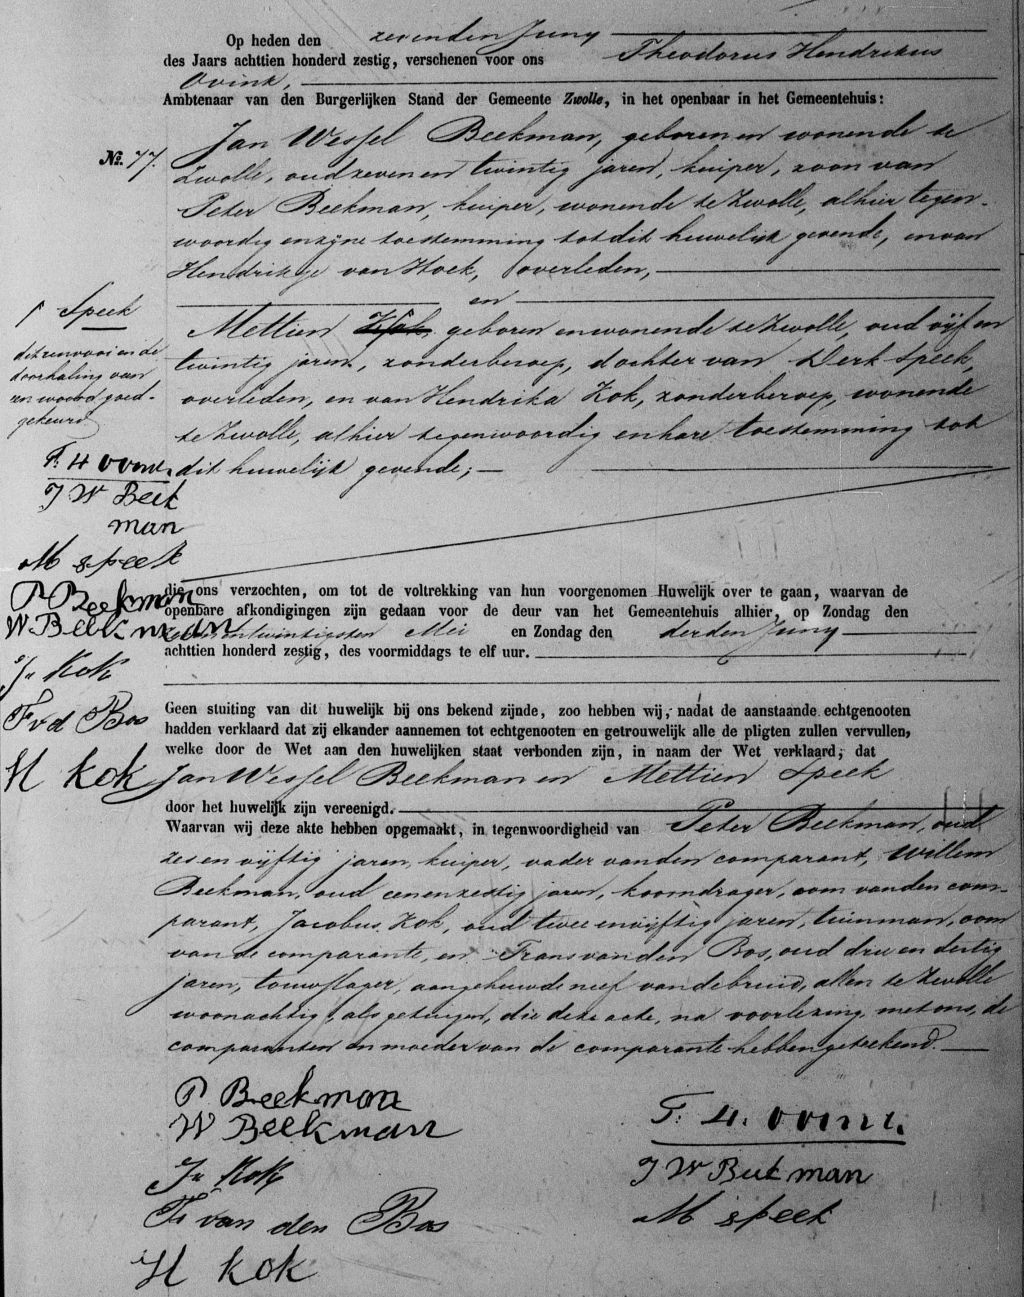 Op heden den zevenden Juny
des Jaars achttien honderd zestig, verschenen voor ons Theodorus Hendrikus
Ovink,
Ambtenaar van den Burgerlijken Stand der Gemeente Zwolle, in het openbaar in het Gemeentehuis:
No. 77.
Jan Wessel Beekman, geboren en wonende te
Zwolle, oud zeven en twintig jaren, kuiper, zoon van
Peter Beekman, kuiper, wonende te Zwolle, alhier tegen-
woordig en zyne toestemming tot dit huwelijk gevende, en van
Hendrikje van Hoek, overleden,
en
Mettien Kok, geboren en wonende te Zwolle, oud vijf en
twintig jaren, zonder beroep, dochter van Derk Speek,
overleden, en van Hendrika Kok, zonder beroep, wonende
te Zwolle, alhier tegenwoordig en hare toestemming tot
dit huwelijk gevende;
Speek
dit renvooi en de
doorhaling van
een woord goed-
gekeurd
J W Beek
man
M speek
P Beekman
W Beekman
Js Kok
F v d Bos
H kok
die ons verzochten, om tot de voltrekking van hun voorgenomen Huwelijk over te gaan, waarvan de
openbare afkondigingen zijn gedaan voor de deur van het Gemeentehuis alhier, op Zondag den
zevenentwintigsten Mei en Zondag den derden Juny
achttien honderd zestig, des voormiddags te elf uur.
Geen stuiting van dit huwelijk bij ons bekend zijnde, zoo hebben wij, nadat de aanstaande echtgenooten
hadden verklaard dat zij elkander aannemen tot echtgenooten en getrouwelijk alle de pligten zullen vervullen,
welke door de Wet aan den huwelijken staat verbonden zijn, in naam der Wet verklaard, dat
Jan Wessel Beekman en Mettien Speek
door het huwelijk zijn vereenigd.
Waarvan wij deze akte hebben opgemaakt, in tegenwoordigheid van Peter Beekman, oud
zes en vijftig jaren, kuiper, vader van den comparant, Willem
Beekman, oud een en zestig jaren, koorndrager, oom van den com-
parant, Jacobus Kok, oud twee en vijftig jaren, tuinman, oom
van de comparante, en Frans van den Bos, oud drie en dertig
jaren, touwslager, aangehuwde neef van de bruid, allen te Zwolle
woonachtig, als getuigen, die deze acte, na voorlezing, met ons, de
comparanten en moeder van de comparante hebben geteekend.
P Beekman
W Beekman
Js Kok
Fs van den Bos
H kok
J W Beekman
M speek